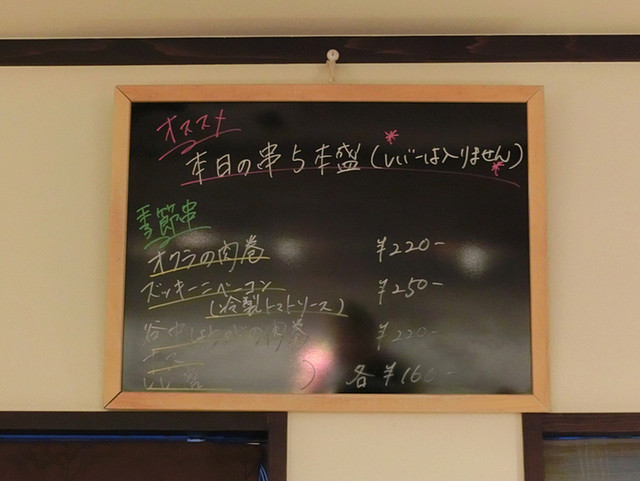 オススメ
本日の串5本盛(*レバーは入りません*)
季節串
オクラの肉巻 ¥220-
ズッキーニベーコン ¥250-
(冷製トマトソース)
谷中しょうがの肉巻 ¥220-
) 各¥160-